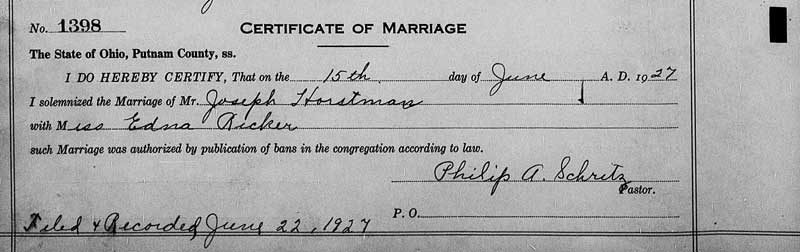 No. 1398 CERTIFICATE OF MARRIAGE
The State of Ohio, Putnam County, ss.
I DO HEREBY CERTIFY, That on the 15th day of June A. D. 1927
I solemnized the Marriage of Mr. Joseph Horstman
with Miss Edna Ricker
such Marriage was authorized by publication of bans in the congregation according to law.
Philip A. Schritz
Pastor.
P. O.
Filed & Recorded June 22, 1927